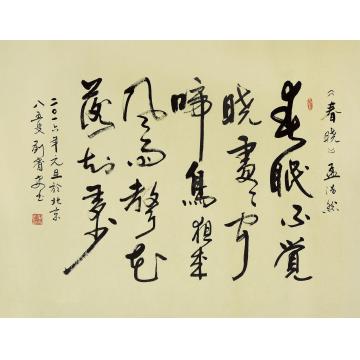 《春晓》孟浩然
春眠不觉
晓處々闻
啼鳥夜来
風雨聲花
落知多少
二〇一六年元旦於北京
八五叟刘